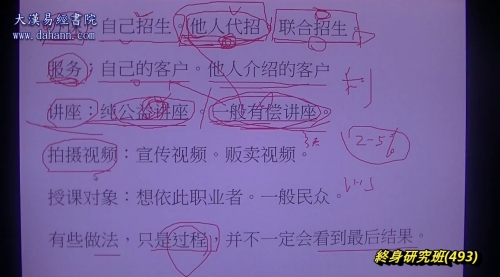 大漢易經書院
www.danann.com
自己招生。他人代招。联合招生
服务：自己的客户。他人介绍的客户
讲座：纯公益讲座。一般有偿讲座。
拍摄视频：宣传视频。贩卖视频。
授课对象：想依此职业者。一般民众。
有些做法，只是过程，并不一定会看到最后结果。
终身研究班(493)